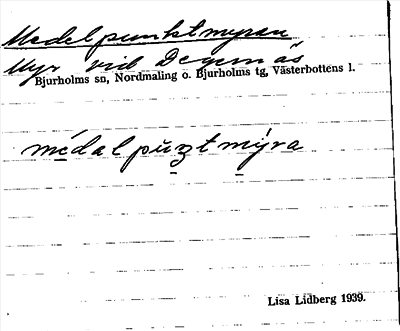 Medelpunktmyran
Myr vid Degernäs
Bjurholms sn, Nordmaling o. Bjurholms tg, Västerbottens l.
médalpuztmýra
Lisa Lidberg 1939.